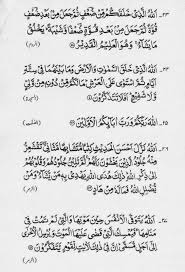 اَللّٰهُ الَّذِیْ خَلَقَكُمْ مِّنْ ضُعْفٍ ثُمَّ جَعَلَ مِنْۢ بَعْدِ ضُعْفٍ
قُوَّةً ثُمَّ جَعَلَ مِنْۢ بَعْدِ قُوَّةٍ ضُعْفًا وَّشَيْبَةً يَخْلُقُ
مَا يَشَآءُ وَهُوَ الْعَلِيْمُ الْقَدِيْرُ
اَللّٰهُ الَّذِیْ خَلَقَ السَّمٰوٰتِ وَالْاَرْضَ وَمَا بَيْنَهُمَا فِیْ سِتَّةِ
اَيَّامٍ ثُمَّ اسْتَوٰى عَلَى الْعَرْشِ مَا لَكُمْ مِّنْ دُوْنِهٖ مِنْ وَّلِیٍّ
وَّلَا شَفِيْعٍ اَفَلَا تَتَذَكَّرُوْنَ
اَللّٰهَ رَبَّكُمْ وَرَبَّ اٰبَآئِكُمُ الْاَوَّلِيْنَ
اَللّٰهُ نَزَّلَ اَحْسَنَ الْحَدِيْثِ كِتٰبًا مُّتَشَابِهًا مَّثَانِیَ تَقْشَعِرُّ
مِنْهُ جُلُوْدُ الَّذِيْنَ يَخْشَوْنَ رَبَّهُمْ ثُمَّ تَلِيْنُ جُلُوْدُهُمْ وَقُلُوْبُهُمْ
اِلٰى ذِكْرِ اللّٰهِ ذٰلِكَ هُدَى اللّٰهِ يَهْدِیْ بِهٖ مَنْ يَّشَآءُ وَمَنْ
يُّضْلِلِ اللّٰهُ فَمَا لَهٗ مِنْ هَادٍ
اَللّٰهُ يَتَوَفَّى الْاَنْفُسَ حِيْنَ مَوْتِهَا وَالَّتِیْ لَمْ تَمُتْ فِیْ
مَنَامِهَا فَيُمْسِكُ الَّتِیْ قَضٰى عَلَيْهَا الْمَوْتَ وَيُرْسِلُ الْاُخْرٰى اِلٰى
اَجَلٍ مُّسَمًّى اِنَّ فِیْ ذٰلِكَ لَاٰيٰتٍ لِّقَوْمٍ يَّتَفَكَّرُوْنَ